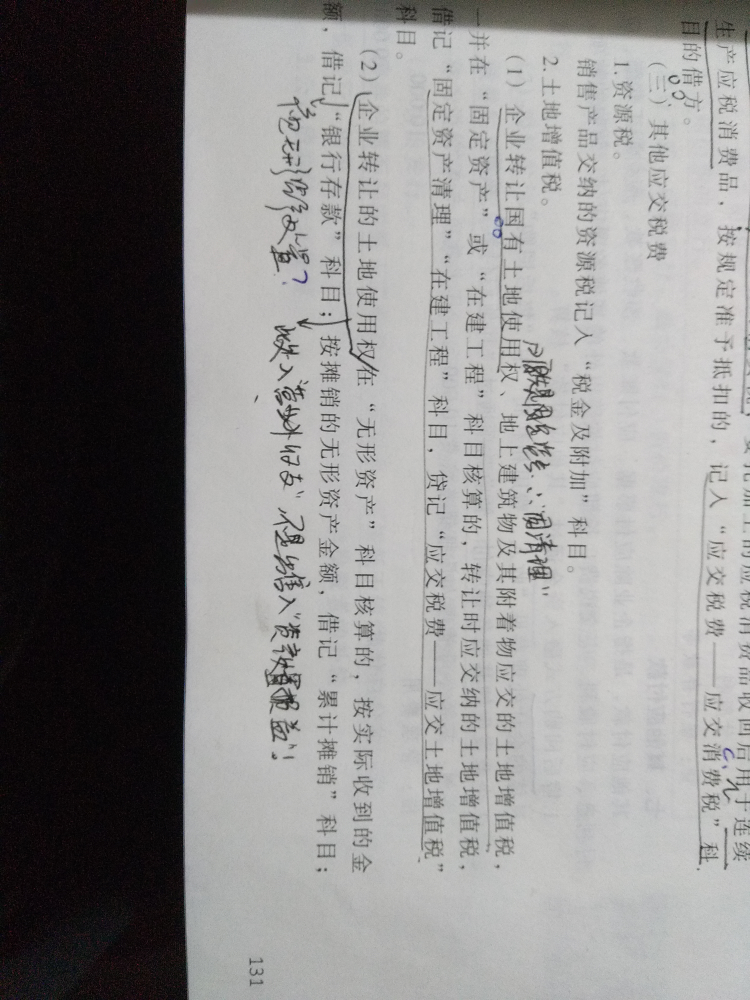 生产应税消费品，按规定准予抵扣的，记入“应交税费——应交消费税”科
目的借方。
（三）其他应交税费
1.资源税。
销售产品交纳的资源税记入“税金及附加”科目。
2.土地增值税。
（1）企业转让国有土地使用权、地上建筑物及其附着物应交的土地增值税，
一并在“固定资产”或“在建工程”科目核算的，转让时应交纳的土地增值税，
借记“固定资产清理”“在建工程”科目，贷记“应交税费——应交土地增值税”
科目。
（2）企业转让的土地使用权在“无形资产”科目核算的，按实际收到的金
额，借记“银行存款”科目；按摊销的无形资产金额，借记“累计摊销”科目；
131